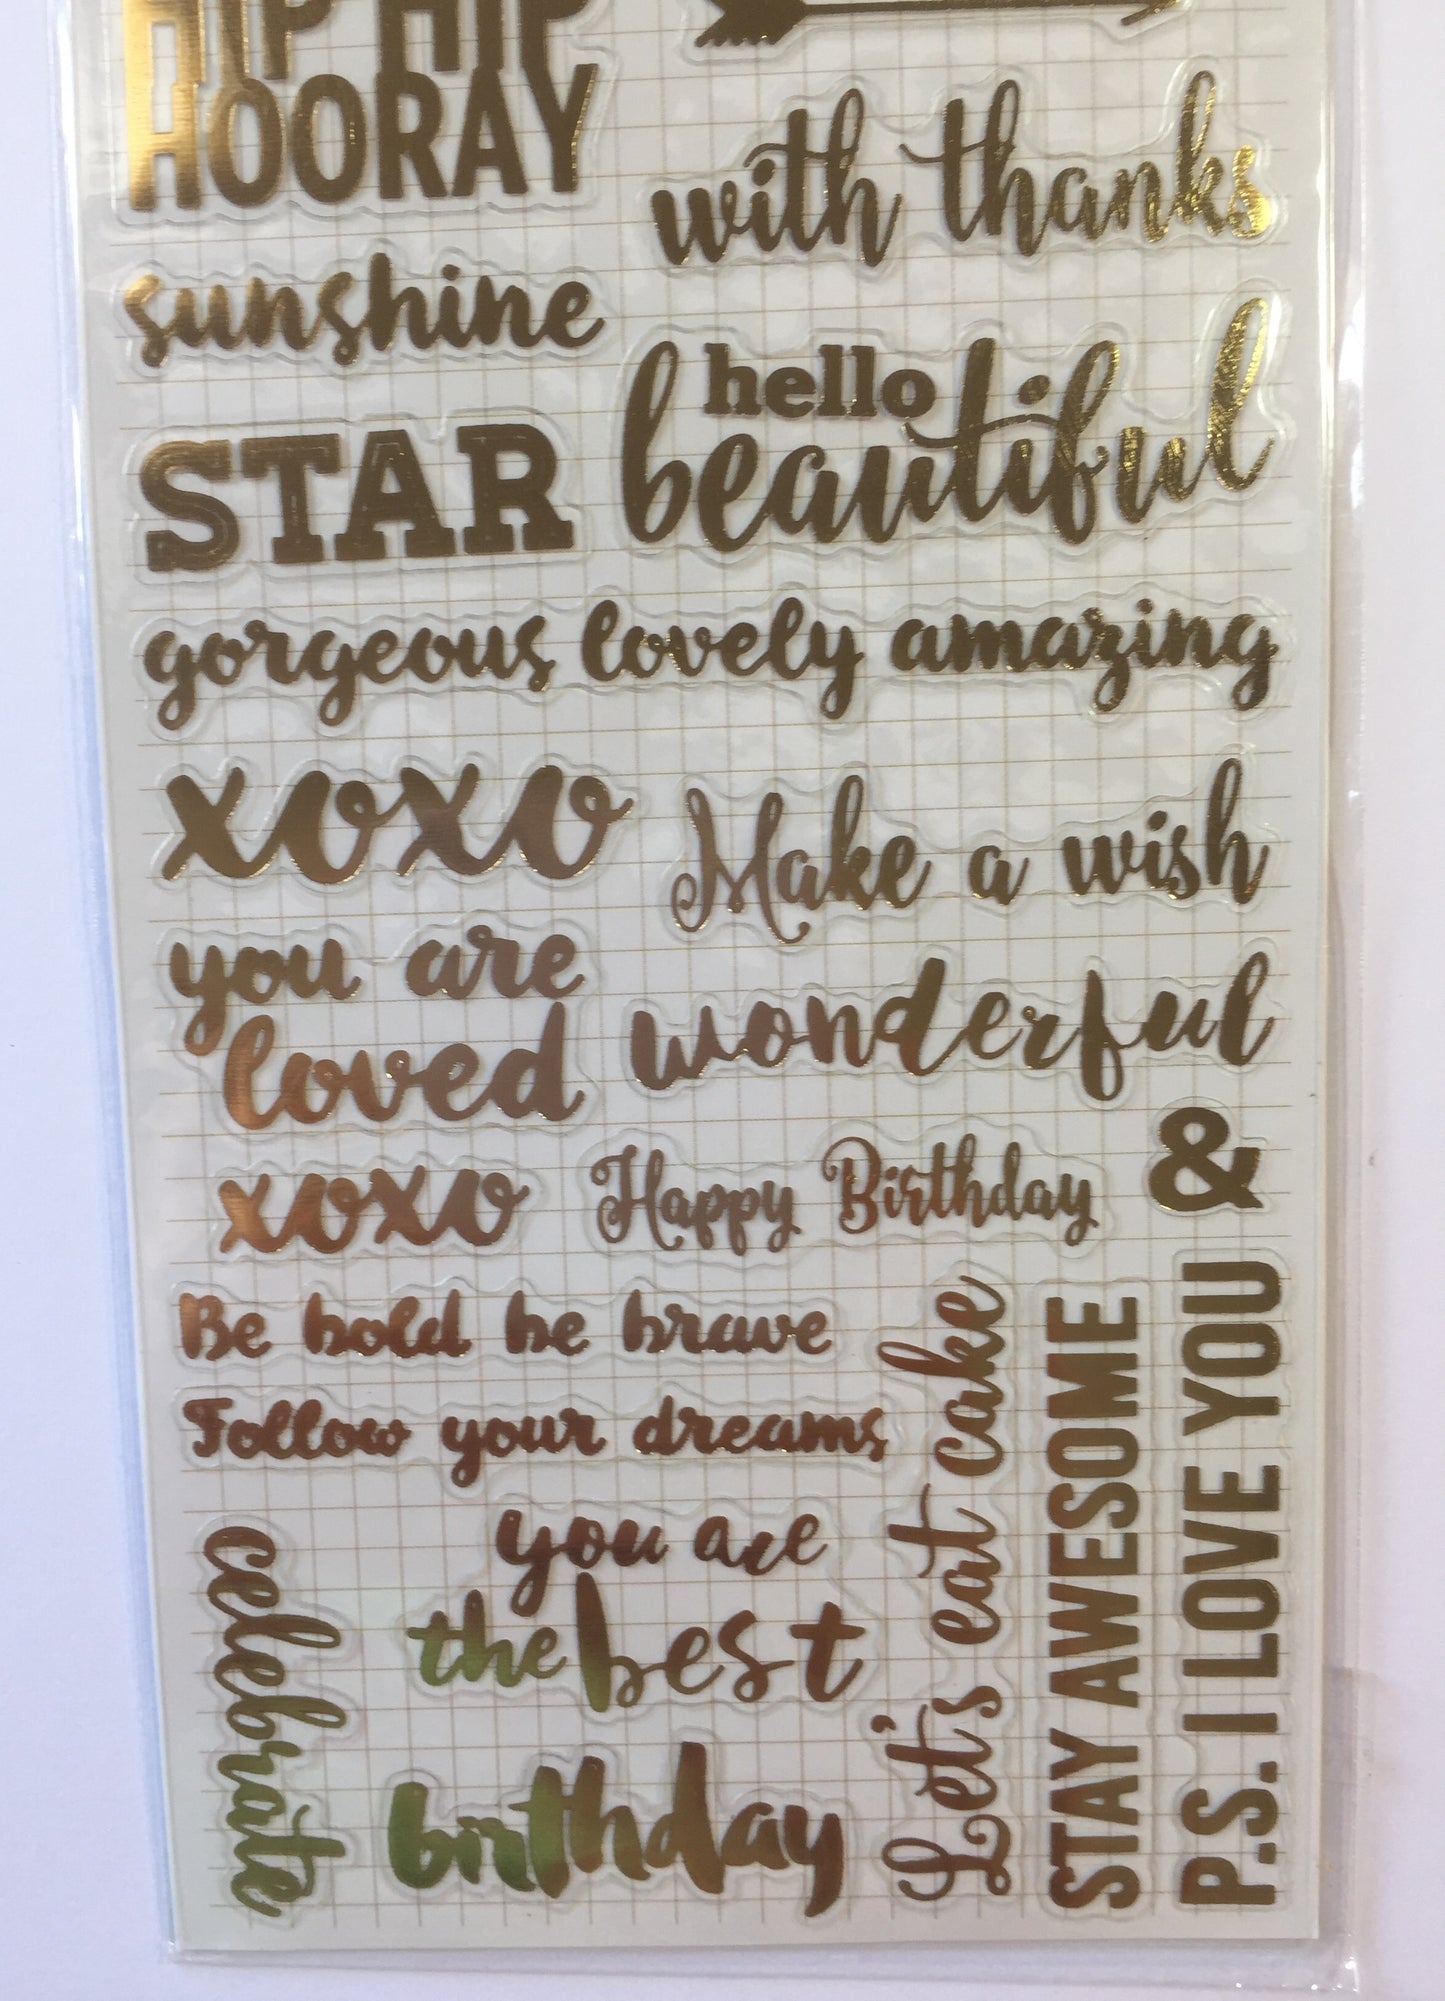 HIP HIP
HOORAY
with thanks
sunshine
hello
beautiful
STAR
gorgeous lovely amazing
xoxo
Make a wish
you are
loved
wonderful
xoxo
Happy Birthday
&
Be bold be brave
Follow your dreams
Let's eat cake
STAY AWESOME
P.S. I LOVE YOU
celebrate
you are
the best
birthday